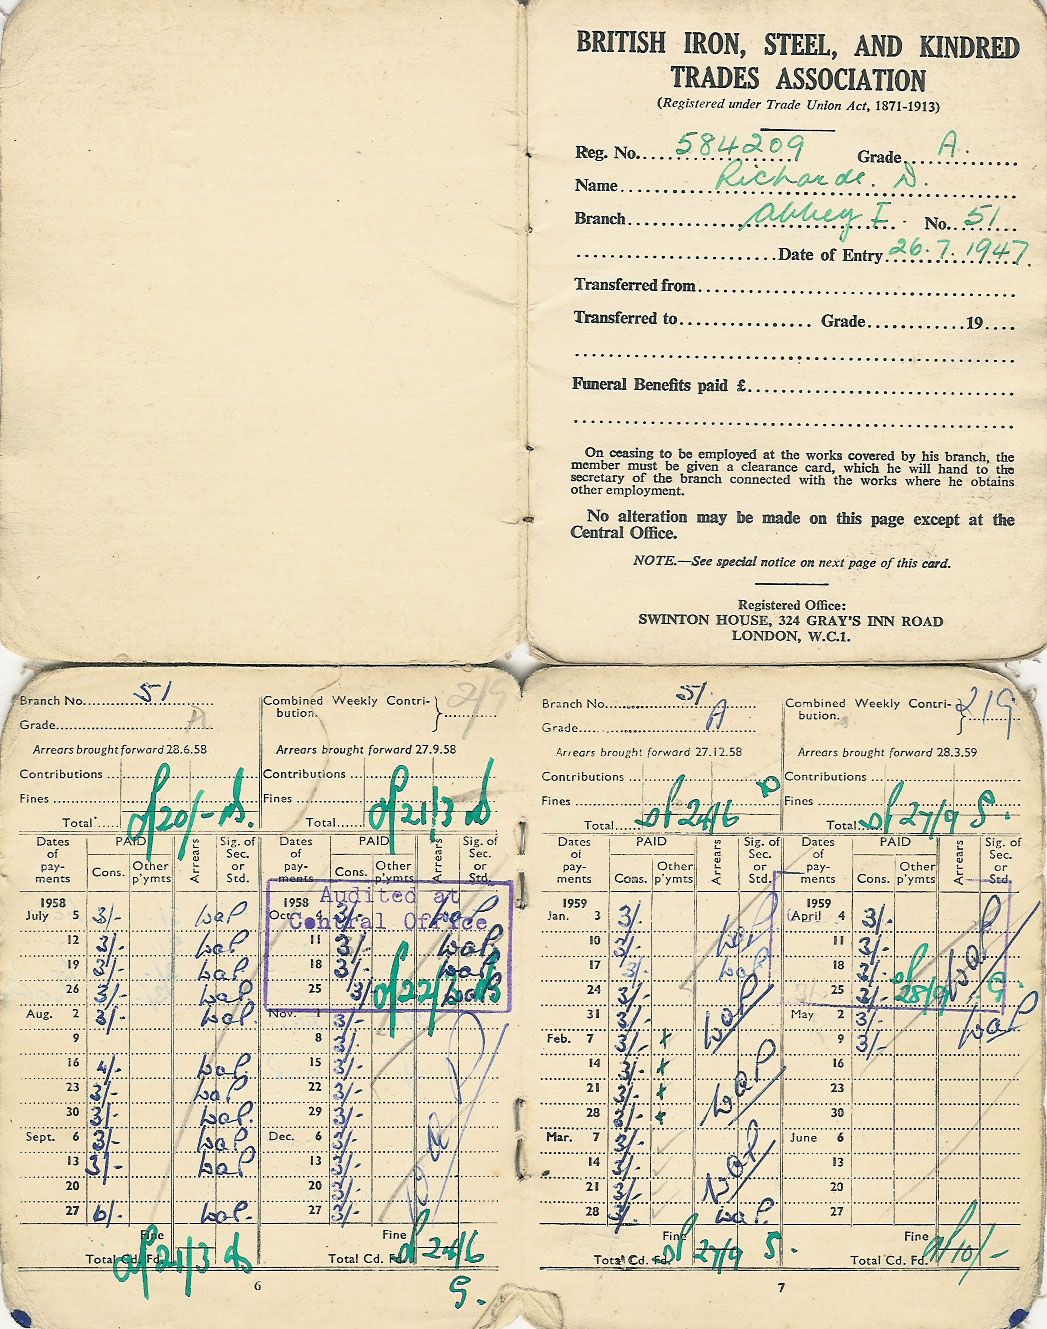 BRITISH IRON, STEEL, AND KINDRED
TRADES ASSOCIATION
(Registered under Trade Union Act, 1871-1913)
Reg. No. 584209 Grade A.
Name Richards. D.
Branch Abbey I. No. 51
Date of Entry 26.7.1947.
Transferred from
Transferred to Grade 19
Funeral Benefits paid £
On ceasing to be employed at the works covered by his branch, the
member must be given a clearance card, which he will hand to the
secretary of the branch connected with the works where he obtains
other employment.
No alteration may be made on this page except at the
Central Office.
NOTE.—See special notice on next page of this card.
Registered Office:
SWINTON HOUSE, 324 GRAY'S INN ROAD
LONDON, W.C.1.
Branch No. 51
Grade A
Arrears brought forward 28.6.58
Contributions
Fines
Total 20/-
Dates of pay-ments PAID Cons. Other p'ymts Arrears Sig. of Sec. or Std.
1958
July 5 3/- WaP
12 3/- WaP
19 3/- WaP
26 3/- WaP
Aug. 2 3/- WaP.
9
16 4/- WaP
23 3/- WaP
30 3/- WaP.
Sept. 6 3/- WaP
13 3/- WaP
20
27 6/- WaP.
Fine
Total Cd. Fd. 21/3
Combined Weekly Contri-
bution. 2/9
Arrears brought forward 27.9.58
Contributions
Fines
Total 21/3
Dates of pay-ments PAID Cons. Other p'ymts Arrears Sig. of Sec. or Std.
Audited at
Central Office
1958
Oct. 4 3/- WaP
11 3/- WaP
18 3/- WaP
25 3/- WaP
Nov. 1 3/-
8 3/-
15 3/-
22 3/-
29 3/-
Dec. 6 3/-
13 3/-
20 3/-
27 3/-
Fine
Total Cd. Fd. 24/6
6
Branch No. 51.
Grade A
Arrears brought forward 27.12.58
Contributions
Fines
Total 24/6
Dates of pay-ments PAID Cons. Other p'ymts Arrears Sig. of Sec. or Std.
1959
Jan. 3 3/-
10 3/- WaP
17 3/- WaP
24 3/-
31 3/- WaP
Feb. 7 3/- x
14 3/- x
21 3/- x WaP
28 3/- x
Mar. 7 3/-
14 3/-
21 3/- WaP
28 3/- WaP.
Fine
Total Cd. Fd. 27/9 S.
Combined Weekly Contri-
bution. 2/9
Arrears brought forward 28.3.59
Contributions
Fines
Total 27/9 S.
Dates of pay-ments PAID Cons. Other p'ymts Arrears Sig. of Sec. or Std.
1959
April 4 3/-
11 3/-
18 3/- WaP
25 3/-
May 2 3/- WaP
9 3/-
16
23
30
June 6
13
20
27
Fine
Total Cd. Fd. 10/-
7